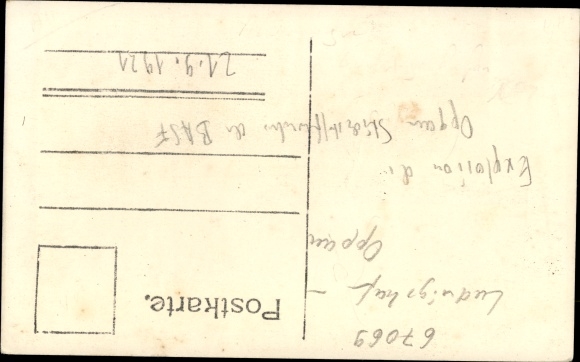 67069
Ludwigshaf -
Oppau
Explosion d
Oppau Stickstoffwerke der BASF
21.9.1921
Postkarte.